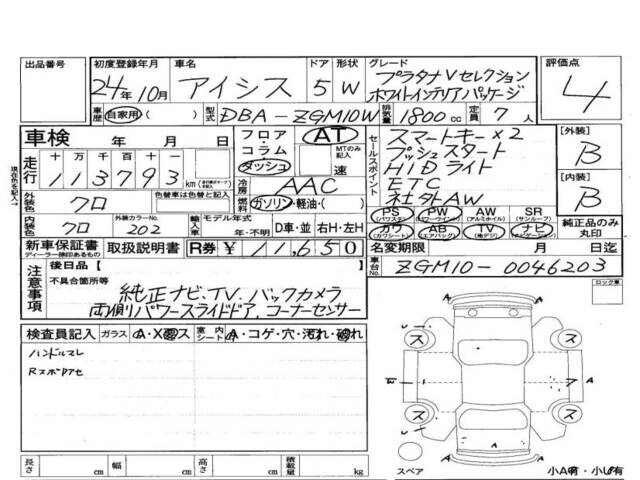 出品番号
初度登録年月 車名 ドア 形状 グレード 評価点
24年10月 アイシス 5 W プラタナVセレクション ホワイトインテリアパッケージ 4
車歴 自家用 ( ) 型式 DBA-ZGM10W 排気量 1800cc 定員 7人
車検 年 月 日 フロア AT セールスポイント スマートキー×2 [外装]
コラム MTのみ記入 プッシュスタート B
走行 十万千百十一 ダッシュ 速 HIDライト
113793 km 冷房 AAC ETC [内装]
外装色 クロ 色替車は色替と記入 燃料 ガソリン・軽油・( ) 社外AW B
PS PW AW SR
(パワステ) (パワーウインド) (アルミホイル) (サンルーフ)
内装色 クロ 外装カラーNo. 202 輸入車 モデル年式 年・不明 D車・並 右H・左H カワ AB TV ナビ 純正品のみ丸印
(カワシート) (エアバッグ) (地デジ) (ナビゲーション)
新車保証書 取扱説明書 R券 ¥11,650 名変期限 月 日迄
ディーラー捺印あるもの
車台No. ZGM10-0046203
現在色を記入→
注意事項 後日品[ ]
不具合箇所等
純正ナビ、TV、バックカメラ
両側パワースライドドア、コーナーセンサー
ロック車
検査員記入 ガラス A・X・ス 室内シート A・コゲ・穴・汚れ・破れ
ハンドルスレ
Rスポアセ
U
ス ス
W 7 A
ス ス
U
A A
スペア
小A有・小U有
長さ cm 幅 cm 高さ cm 積載量 kg